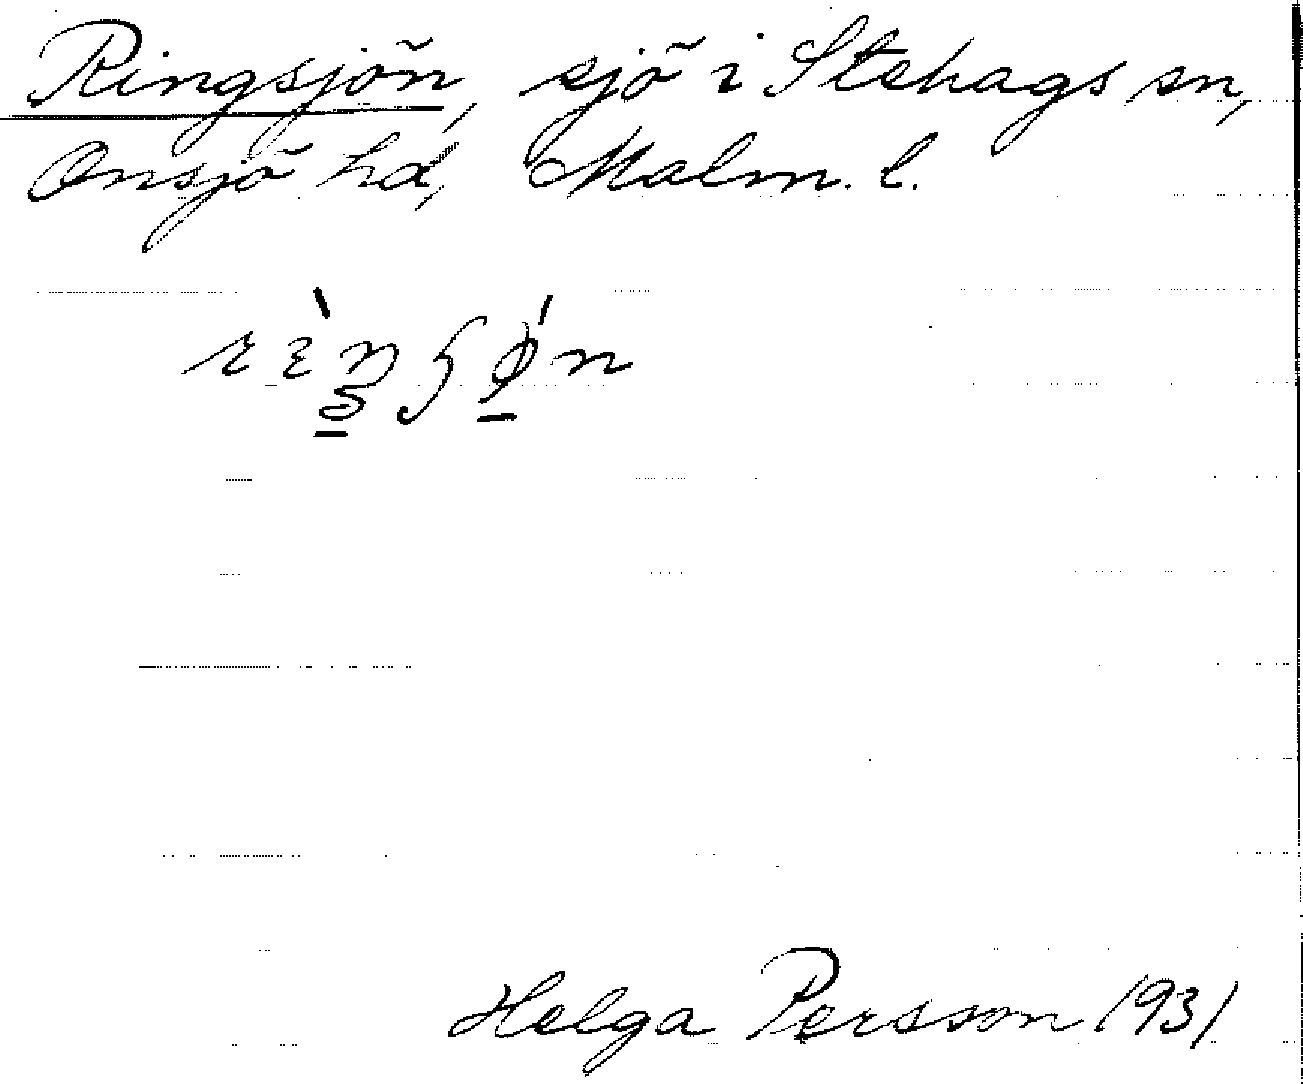 Ringsjön, sjö i Stehags sn,
Onsjö hd, Malm. l.
Helga Persson 1931